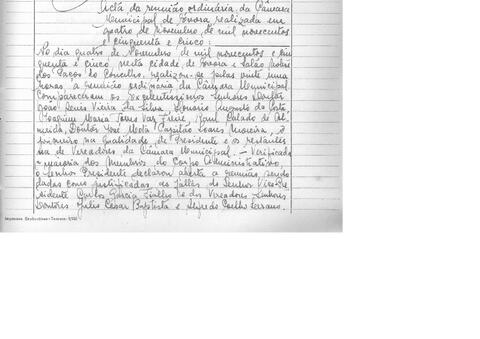 Acta da reunião ordinária da Câmara
Municipal de Évora realizada em
quatro de Novembro de mil novecentos
e cinquenta e cinco:
No dia quatro de Novembro de mil novecentos e cin
quenta e cinco, nesta cidade de Évora e Salão Nobre
dos Paços do Concelho, realizou-se pelas vinte uma
horas, a reunião ordinária da Câmara Municipal.
Compareceram os Excelentissimos Senhores Doutor
João Luis Vieira da Silva, Honorio Augusto da Costa,
Joaquim Maria Torres Vaz Freire, Raul Calado de Al-
meida, Doutor José Mota Capitão Soares Moreira, o
primeiro na qualidade de Presidente e os restantes
na de Vereadores da Câmara Municipal. - Verificada
a maioria dos Membros do Corpo Administrativo,
o Senhor Presidente declarou aberta a reunião, sendo
dadas como justificadas, as faltas do Senhor Vice-Pre
sidente Carlos Garcia Fialho e dos Vereadores Senhores
Doutores Julio Cesar Baptista e Alfredo Coelho Serrano.